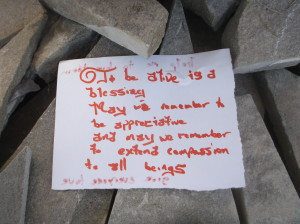 To be alive is a
blessing
May we remember to
be appreciative
and may we remember
to extend compassion
to all beings